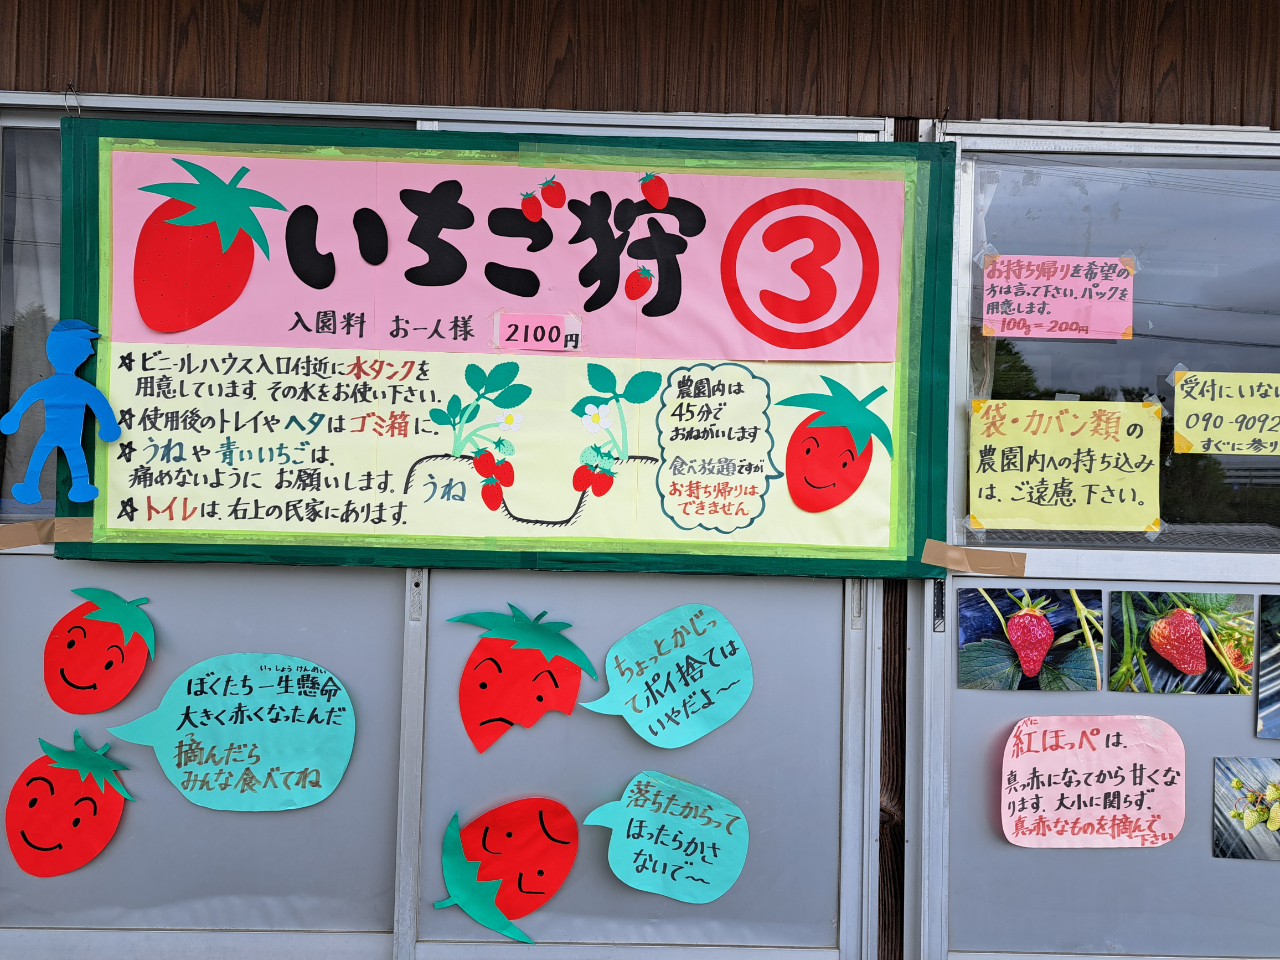 いちご狩
3
入園料 お一人様 2100円
☆ビニールハウス入口付近に水タンクを
用意しています。その水をお使い下さい。
☆使用後のトレイやヘタはゴミ箱に。
☆うねや青いいちごは、
痛めないように お願いします。
☆トイレは、右上の民家にあります。
うね
農園内は
45分で
おねがいします
食べ放題ですが
お持ち帰りは
できません
お持ち帰りを希望の
方は言って下さい。パックを
用意します。
100g=200円
袋・カバン類の
農園内への持ち込み
は、ご遠慮下さい。
受付にいな
090-9092
すぐに参り
いっしょうけんめい
ぼくたち一生懸命
大きく赤くなったんだ
摘んだら
みんな食べてね
ちょっとかじっ
てポイ捨ては
いやだよ〜〜
落ちたからって
ほったらかさ
ないで〜〜
べに
紅ほっぺは、
真っ赤になってから甘くな
ります。大小に関らず、
真っ赤なものを摘んで
下さい